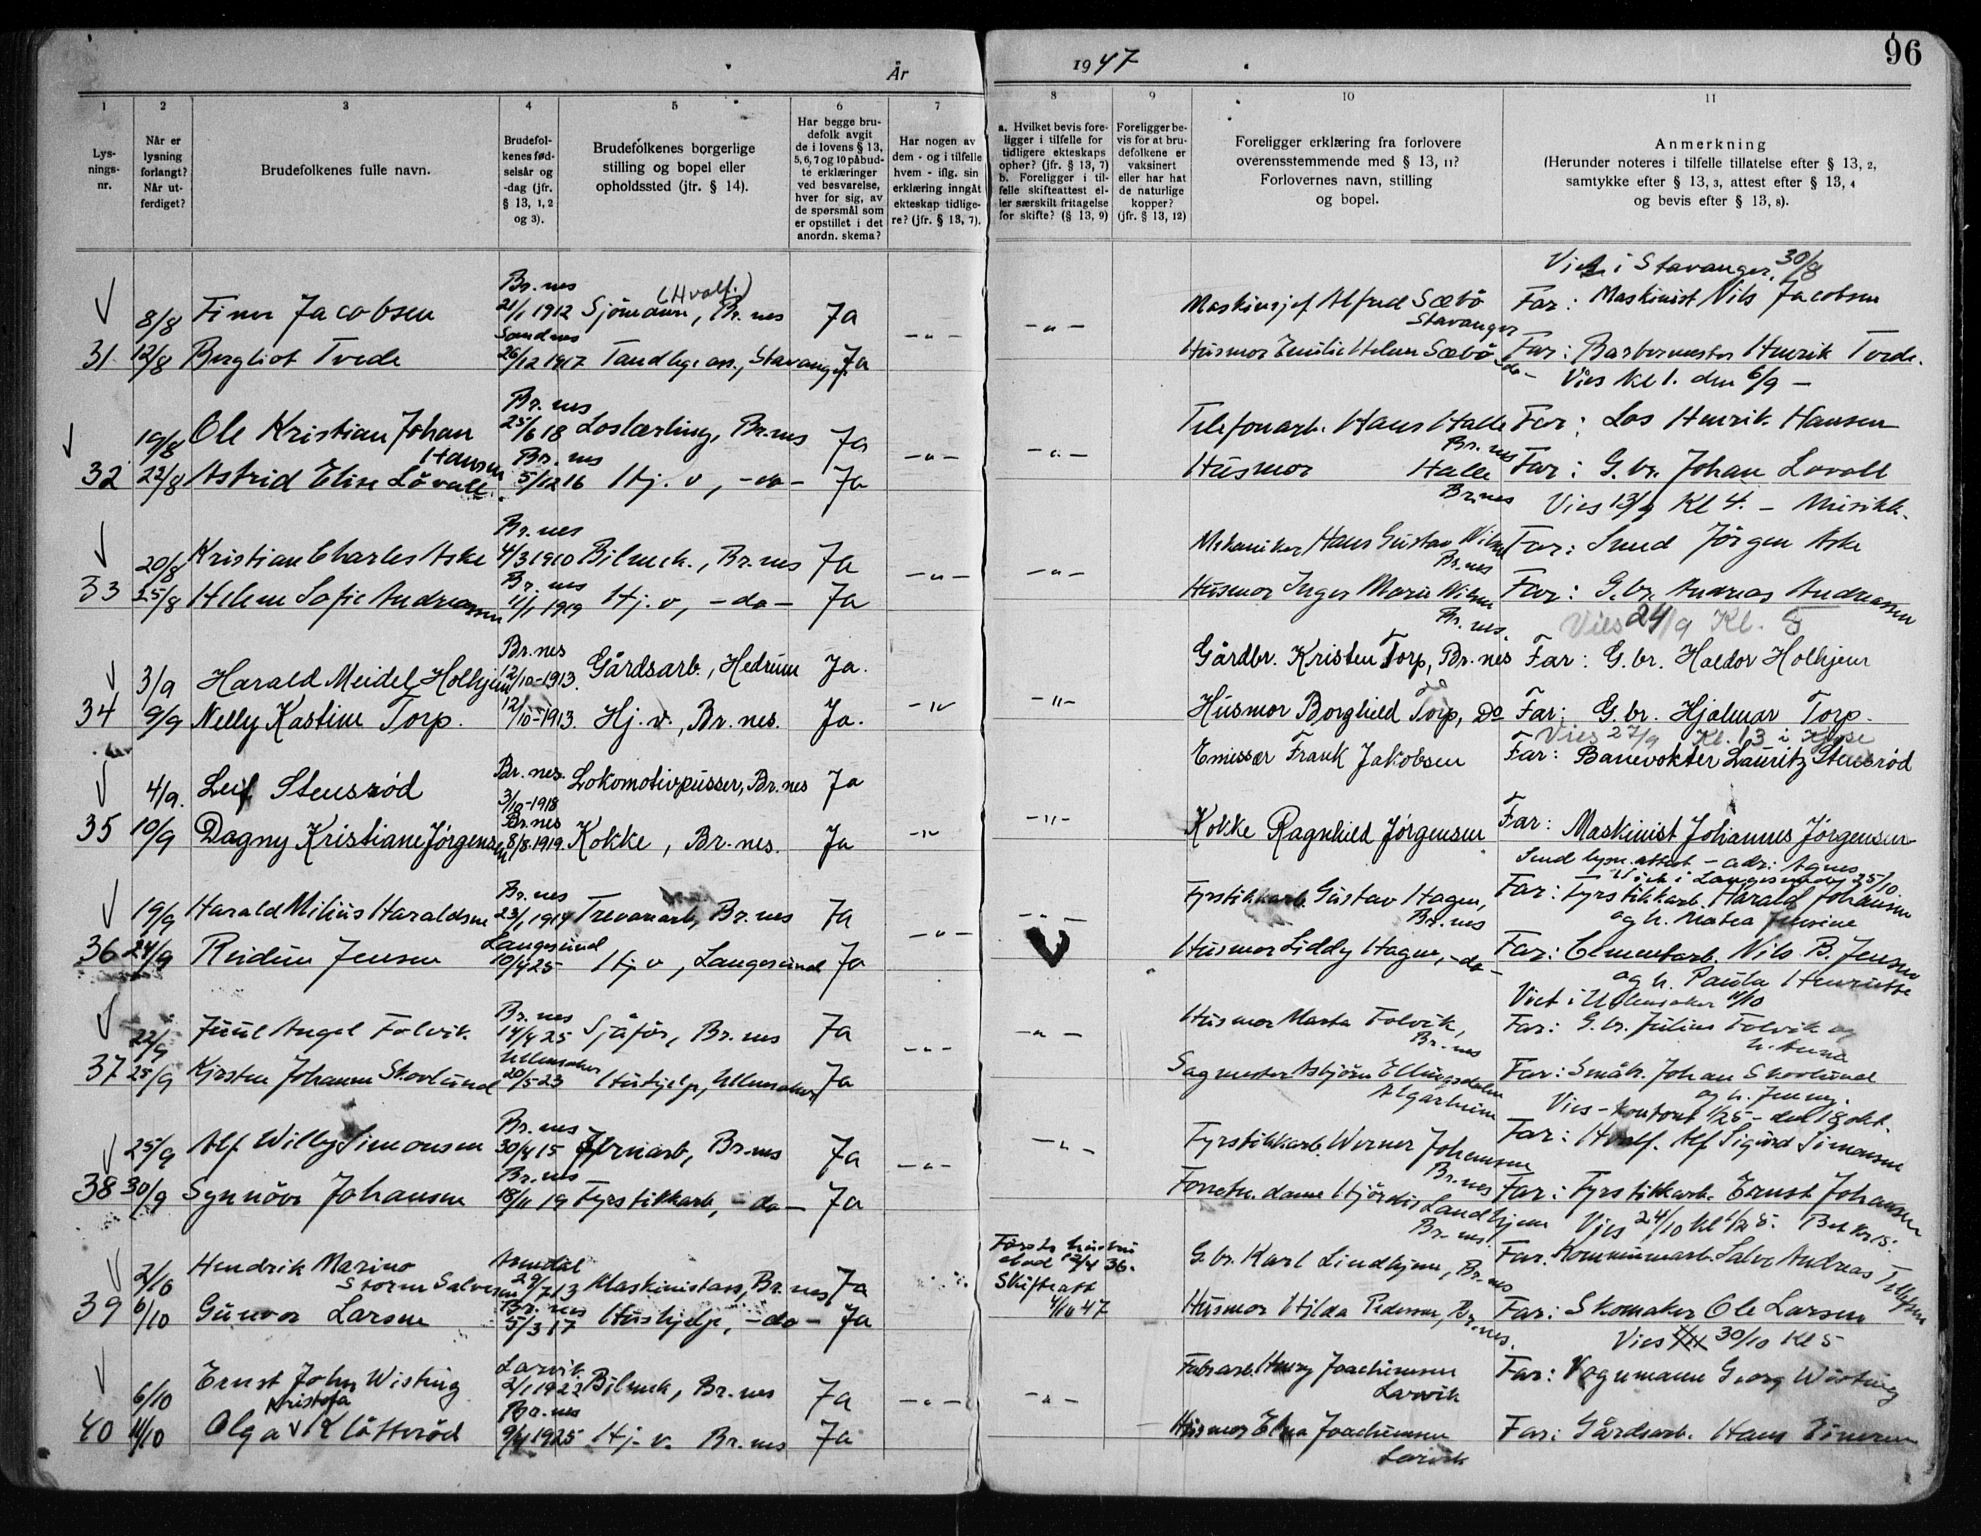 År
1947
96
1
2
3
4
5
6
7
8
9
10
11
Lys-
nings-
nr.
Når er
lysning
forlangt?
Når ut-
ferdiget?
Brudefolkenes fulle navn.
Brudefol-
kenes fød-
selsår og
-dag (jfr.
§ 13, 1, 2
og 3).
Brudefolkenes borgerlige
stilling og bopel eller
opholdssted (jfr. § 14).
Har begge bru-
defolk avgit
de i lovens § 13,
5, 6, 7 og 10 påbud-
te erklæringer
ved besvarelse,
hver for sig, av
de spørsmål som
er opstillet i det
anordn. skema?
Har nogen av
dem - og i tilfelle
hvem - iflg. sin
erklæring inngått
ekteskap tidlige-
re? (jfr. § 13, 7).
a. Hvilket bevis fore-
ligger i tilfelle for
tidligere ekteskaps
ophør? (jfr. § 13, 7)
b. Foreligger i til-
felle skifteattest el-
ler særskilt fritagelse
for skifte? (§ 13, 9)
Foreligger be-
vis for at bru-
defolkene er
vaksinert
eller har hat
de naturlige
kopper?
(jfr. § 13, 12)
Foreligger erklæring fra forlovere
overensstemmende med § 13, 11?
Forlovernes navn, stilling
og bopel.
Anmerkning
(Herunder noteres i tilfelle tillatelse efter § 13, 2,
samtykke efter § 13, 3, attest efter § 13, 4
og bevis efter § 13, 8).
Viet i Stavanger 30/8
Br.nes (Hvalf.)
8/8 Finn Jacobsen 21/1 1912 Sjömann, Br.nes Ja Maskinsjef Alfred Sæbö Stavanger Far: Maskinist Nils Jacobsen
Sandnes -"- -"-
31 12/8 Bergliot Tvede 26/12 1917 Tandlege ass., Stavanger Ja Husmor Emilie Helene Sæbö -do- Far: Barbermester Henrik Tvede.
Vies kl 1. den 6/9 -
Br.nes
19/8 Ole Kristian Johan Hansen 25/6 18 Loslærling, Br.nes Ja Telefonarb. Hans Halle Br.nes Far: Los Henrik Hansen
Br.nes -"- -"-
32 22/8 Astrid Elise Lövall 5/12 16 Hj.v, -do- Ja Husmor Halle Br.nes Far: G.br. Johan Lövall
Vies 13/9 Kl 4. - Musikk.
Br.nes
20/8 Kristian Charles Aske 4/3 1910 Bilmek., Br.nes Ja Mekaniker Hans Gustav Br.nes Far: Smed Jörgen Aske
Br.nes -"- -"-
33 25/8 Helene Sofie Andreassen 11/1 1919 Hj.v, -do- Ja Husmor Inger Marie Br.nes. Far: G.br. Andreas Andreassen
Vies 24/9 Kl. 5
Br.nes
3/9 Harald Meidel Holhjem 12/10-1913. Gårdsarb., Hedrum Ja. Gårdbr. Kristen Torp, Br.nes Far: G.br. Haldor Holhjem
-"- -"-
34 9/9 Nelly Kastine Torp. 12/10-1913. Hj.v., Br.nes. Ja. Husmor Borghild Torp, Do Far: G.br. Hjalmar Torp.
Vies 27/9 Kl. 13 i
4/9. Leif Stensrød Br.nes. 3/10-1918 Lokomotivpusser, Br.nes Ja Emissær Frank Jakobsen Far: Banevokter Lauritz Stensrød
Br.nes -"- -"-
35 10/9 Dagny Kristiane Jørgensen 8/8-1919. Kokke, Br.nes. Ja Kokke Ragnhild Jørgensen Far: Maskinist Johannes Jørgensen
Send lysn.attest - adr: Agnes
Viet i Langesund 25/10.
Br.nes
19/9 Harald Milius Haraldsen 23/1 1914 Trevarearb, Br.nes Ja Fyrstikkarb. Gustav Hagen, Br.nes Far: Fyrstikkarb. Harald Johansen
og h. Matea
Langesund -"- -"-
36 24/9 Reidun Jensen 10/4 25 Hj v, Langesund Ja Husmor Liddy Hagen, -do- Far: Cementarb. Nils B. Jensen
og h. Paula Henriette
Viet i Ullensaker 4/10
Br.nes
22/9 Juul Angel Folvik. 14/4 25 Sjåför, Br.nes Ja Husmor Marta Folvik, Br.nes Far: G.br. Julius Folvik og
h. Anna
Ullensaker -"- -"-
37 25/9 Kirsten Johanne Skovlund 20/5-23 Hushjelp, Ullensaker Ja Sagmester Asbjörn Ellingsdalen Algarheim Far: Småbr. Johan Skovlund
og h. Jenny.
Vies - kontoret 1/2 5 - den 18 okt.
Br.nes
25/9 Alf Willy Simonsen 30/4 15 Jernarb, Br.nes Ja Fyrstikkarb. Werner Johansen Br.nes Far: Hvalf. Alf Sigurd Simonsen
Br.nes -"- -"-
38 30/9 Synnöve Johansen 18/11 19 Fyrstikkarb, -do- Ja Forretn. dame Hjördis Landhjem Br.nes. Far: Fyrstikkarb. Ernst Johansen
Vies 24/10 kl 1/2 5.
Arendal
2/10 Hendrik Marino Storm Salvesen 29/7 13 Maskinistass, Br.nes, Ja Første hustru död 12/4 36. G.br. Karl Lindhjem, Br.nes Far. Kommunearb. Salve Andreas Tellefsen
Br.nes Skifteatt 4/10 47
39 6/10 Gunvor Larsen 5/3 17 Hushjelp, -do- Ja Husmor Hilda Pedersen, Br.nes. Far: Skomaker Ole Larsen
Vies 30/10 Kl 5
Larvik
6/10 Ernst John Wisting 2/1 1923 Bilmek, Br.nes Ja Fabrarb. Henry Joachimsen Larvik Far: Vognmann Georg Wisting
Kristofa Br.nes -"- -"-
40 11/10 Olga Klåstvöd 9/4 1925 Hj.v. Br.nes Ja Husmor Elna Joachimsen Larvik Far: Gårdsarb. Hans Einersen